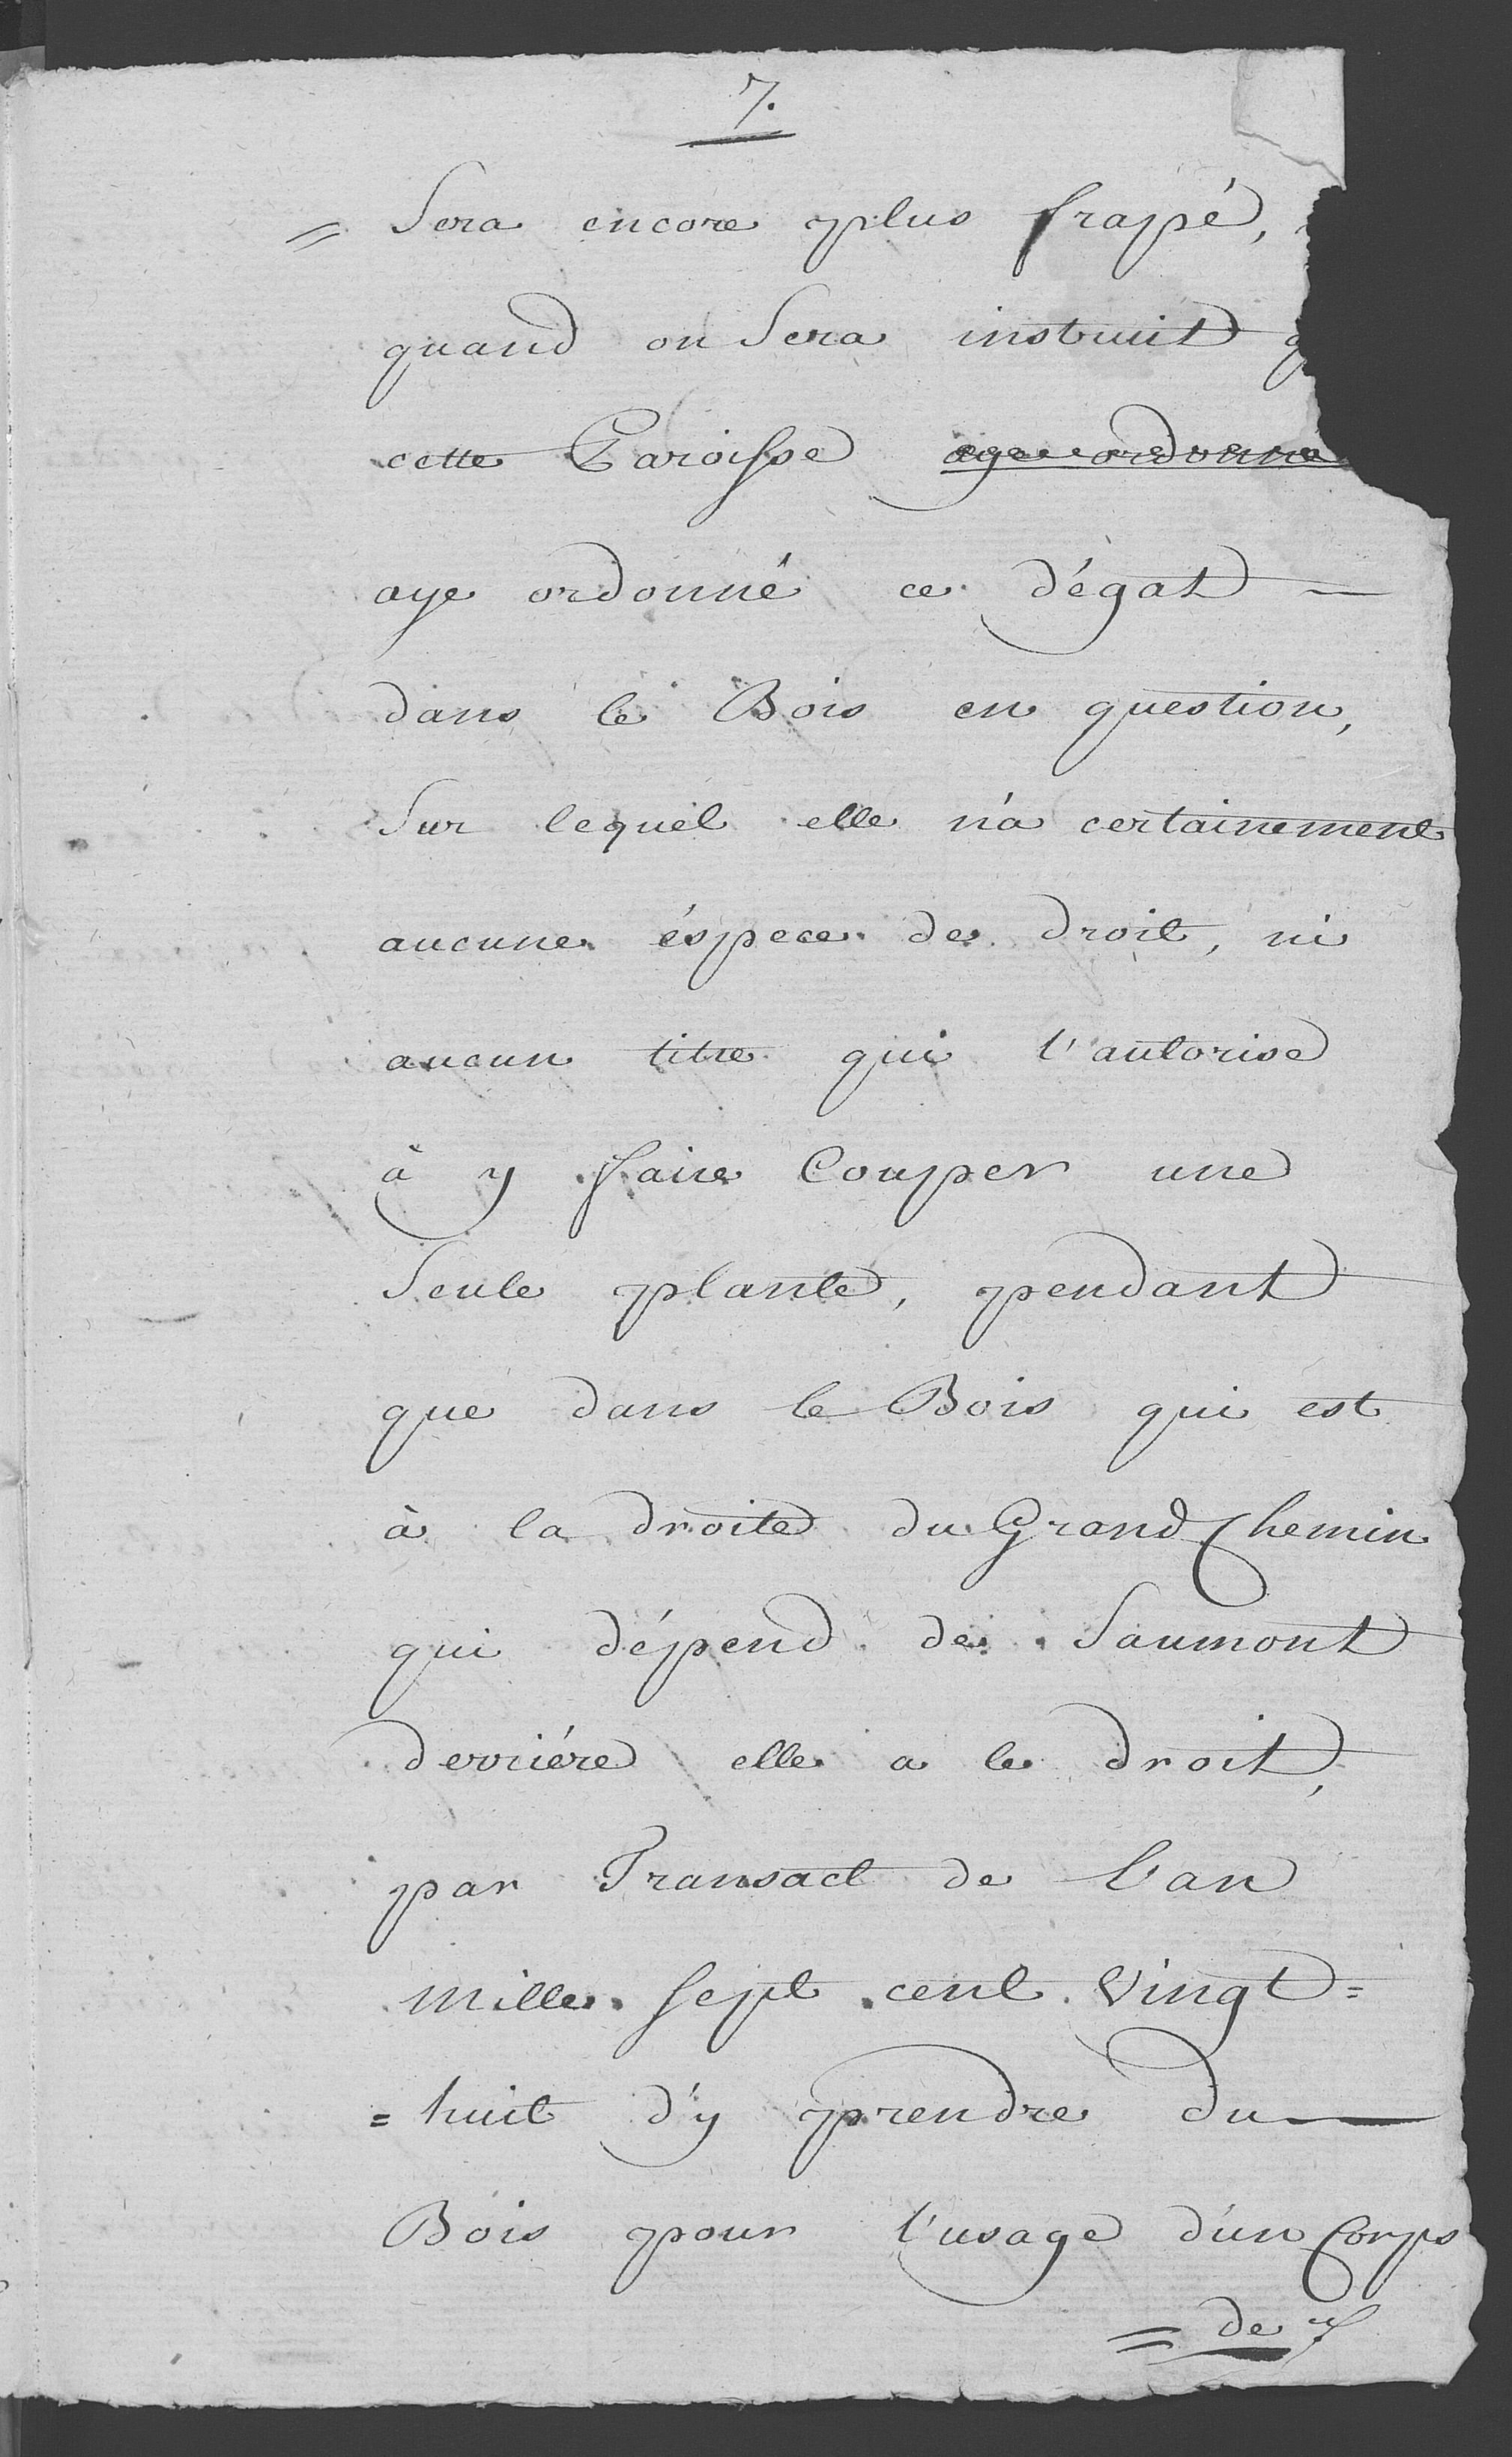 7.
= Sera encore plus frapé,
quand on Sera instruit
cette Paroisse aye ordonné
aye ordonné ce dégat —
dans le Bois en question,
Sur lequel elle n'a certainement
aucune éspece de droit, ni
aucun titre qui l'autorise
à y faire Couper une
Seule plante, pendant
que dans le Bois qui est
à la droite du Grand Chemin
qui dépend de Saumont
derriére elle a le droit,
par Transact de l'an
mille Sept cent Vingt=
=huit d'y prendre du —
Bois pour l'usage d'un Corps
= de